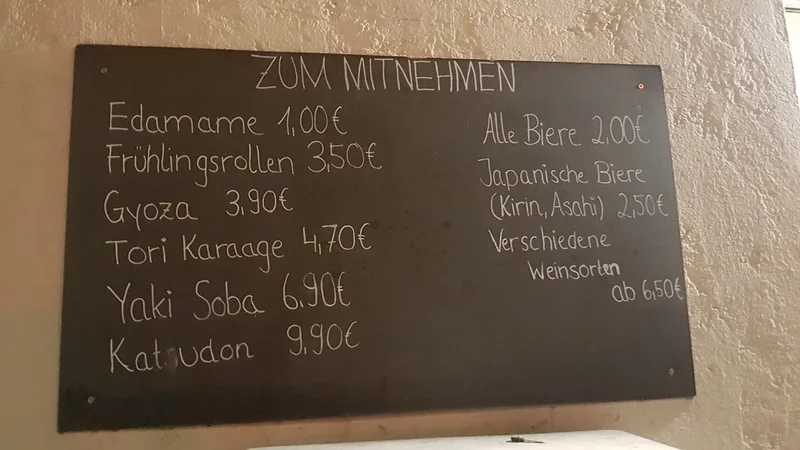 ZUM MITNEHMEN
Edamame 1,00€
Frühlingsrollen 3,50€
Gyoza 3,90€
Tori Karaage 4,70€
Yaki Soba 6,90€
Katsudon 9,90€
Alle Biere 2,00€
Japanische Biere
(Kirin, Asahi) 2,50€
Verschiedene
Weinsorten
ab 6,50€